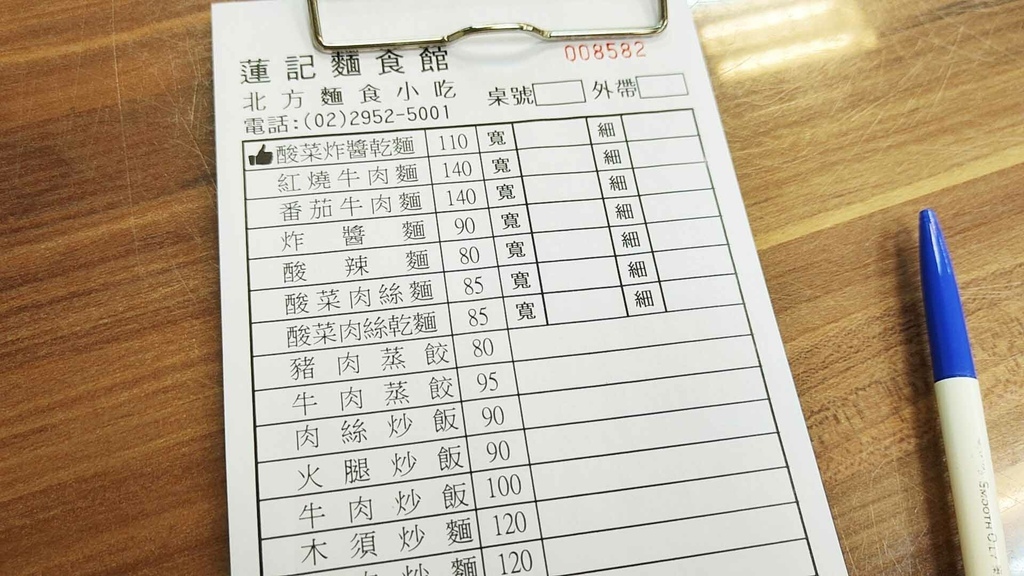 008582
蓮記麵食館
北方麵食小吃 桌號 外帶
電話:(02)2952-5001
酸菜炸醬乾麵 110 寬 細
紅燒牛肉麵 140 寬 細
番茄牛肉麵 140 寬 細
炸醬麵 90 寬 細
酸辣麵 80 寬 細
酸菜肉絲麵 85 寬 細
酸菜肉絲乾麵 85 寬 細
豬肉蒸餃 80
牛肉蒸餃 95
肉絲炒飯 90
火腿炒飯 90
牛肉炒飯 100
木須炒麵 120
炒麵 120